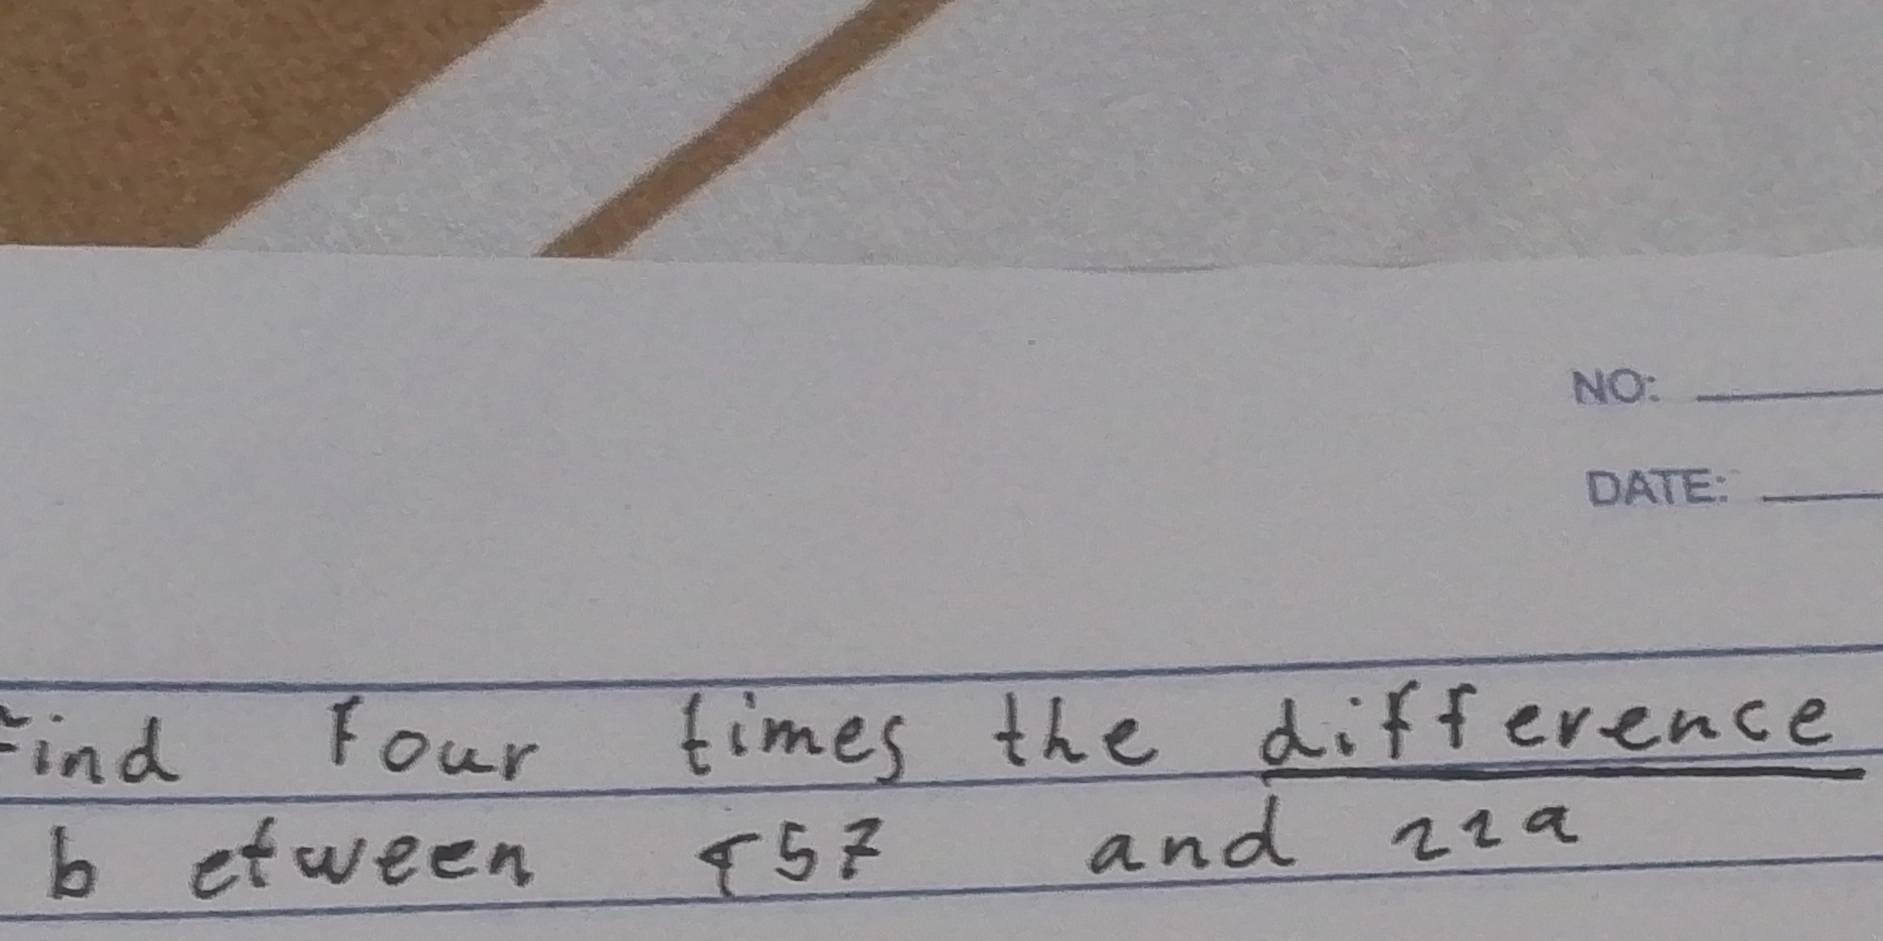 NO:
DATE:
Find Four times the difference
between 457 and 229